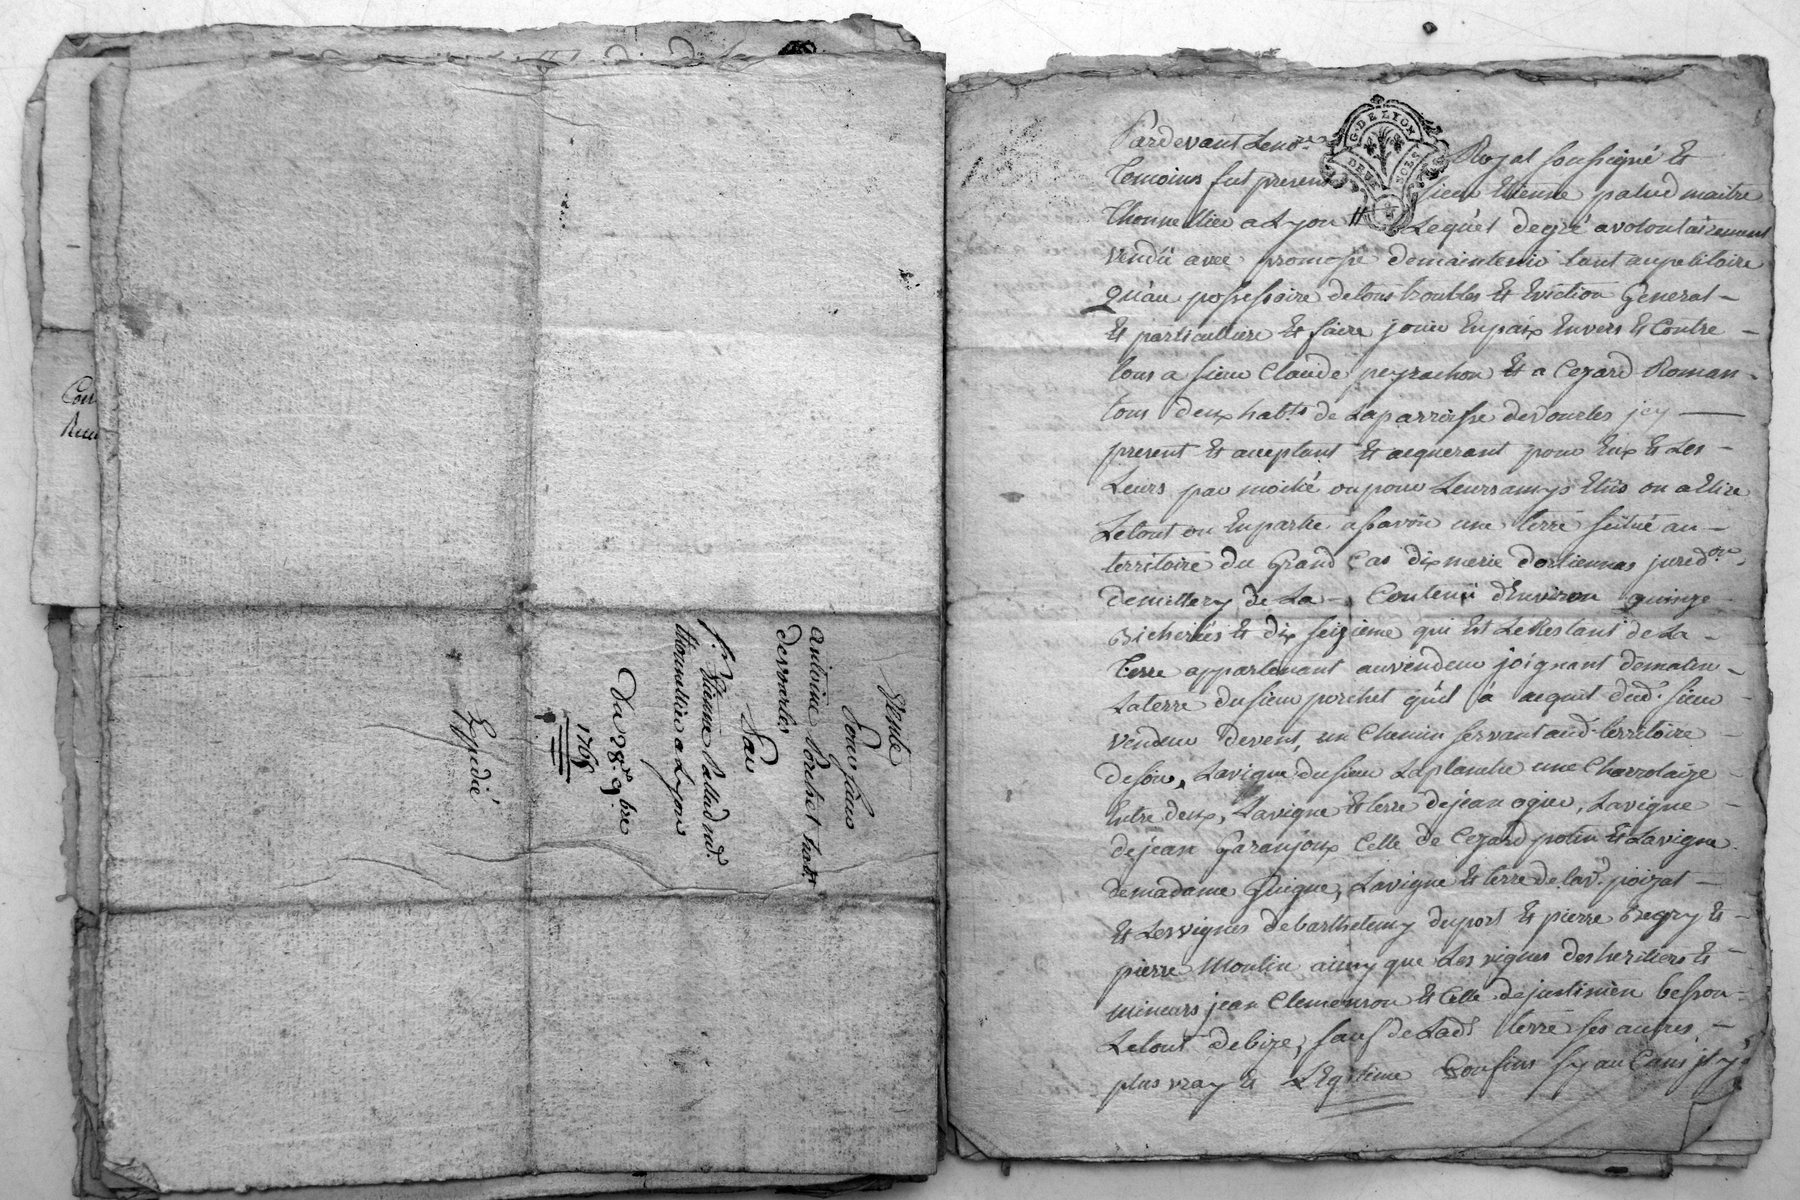 Vente
Pour sieur
antoine Porchet hab.t
de vourles
Par
s.r Etienne Pallud m.d
thonnellier a Lyon
Du 28.e 9.bre
Expedié
G. DE LYON
DEUX SOLS
Pardevant Le no.re Royal soussigné Et
Temoins fut present sieur Etienne palud maitre
Thonnellier a Lyon // Lequel de gré a volontairement
vendu avec promesse de maintenir tant au petitoire
Qu'au possessoire de tous troubles Et Eviction General
Et particulliere Et faire jouir En paix Envers Et Contre
tous a sieur Claude peyrachon Et a Cezard Roman
tous deux hab.ts de La parroisse de vourles icy
present Et acceptant Et acquerant pour Eux Et Les
Leurs par moitié ou pour Leurs amys Elus ou a Elire
Le tout ou En partie a savoir une terre situé au
territoire du Grand Cas dixmerie d'ortiennas jured.on
de millery de La Contenu d'Environ quinze
Bicherées Et dix seizieme qui Est Le Restant de La
Terre appartenant au vendeur joignant de matin
La terre du sieur porchet qu'il a acquit dud. sieur
vendeur de vent, un Chemin servant aud. territoire
de soir, La vigne du sieur Laplanche une Charrolaize
Entre deux, La vigne Et terre de jean ogier, La vigne
de jean Garanjoux Celle de Cezard potin Et La vigne
de madame Guigue, La vigne Et terre de la v.e poizat
Et Les vignes de barthelemy duport Et pierre Bregry Et
pierre Moulin ainsy que Les vignes des heritiers Et
mineurs jean Clemenson Et Celle de justinien besson
Le tout de bize, sauf de Lad. terre ses autres
plus vray Et Legitime Confins sy aucuns il y a